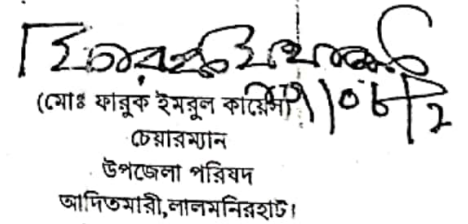 (মোঃ ফারুক ইমরুল কায়েস)
চেয়ারম্যান
উপজেলা পরিষদ
আদিতমারী,লালমনিরহাট।